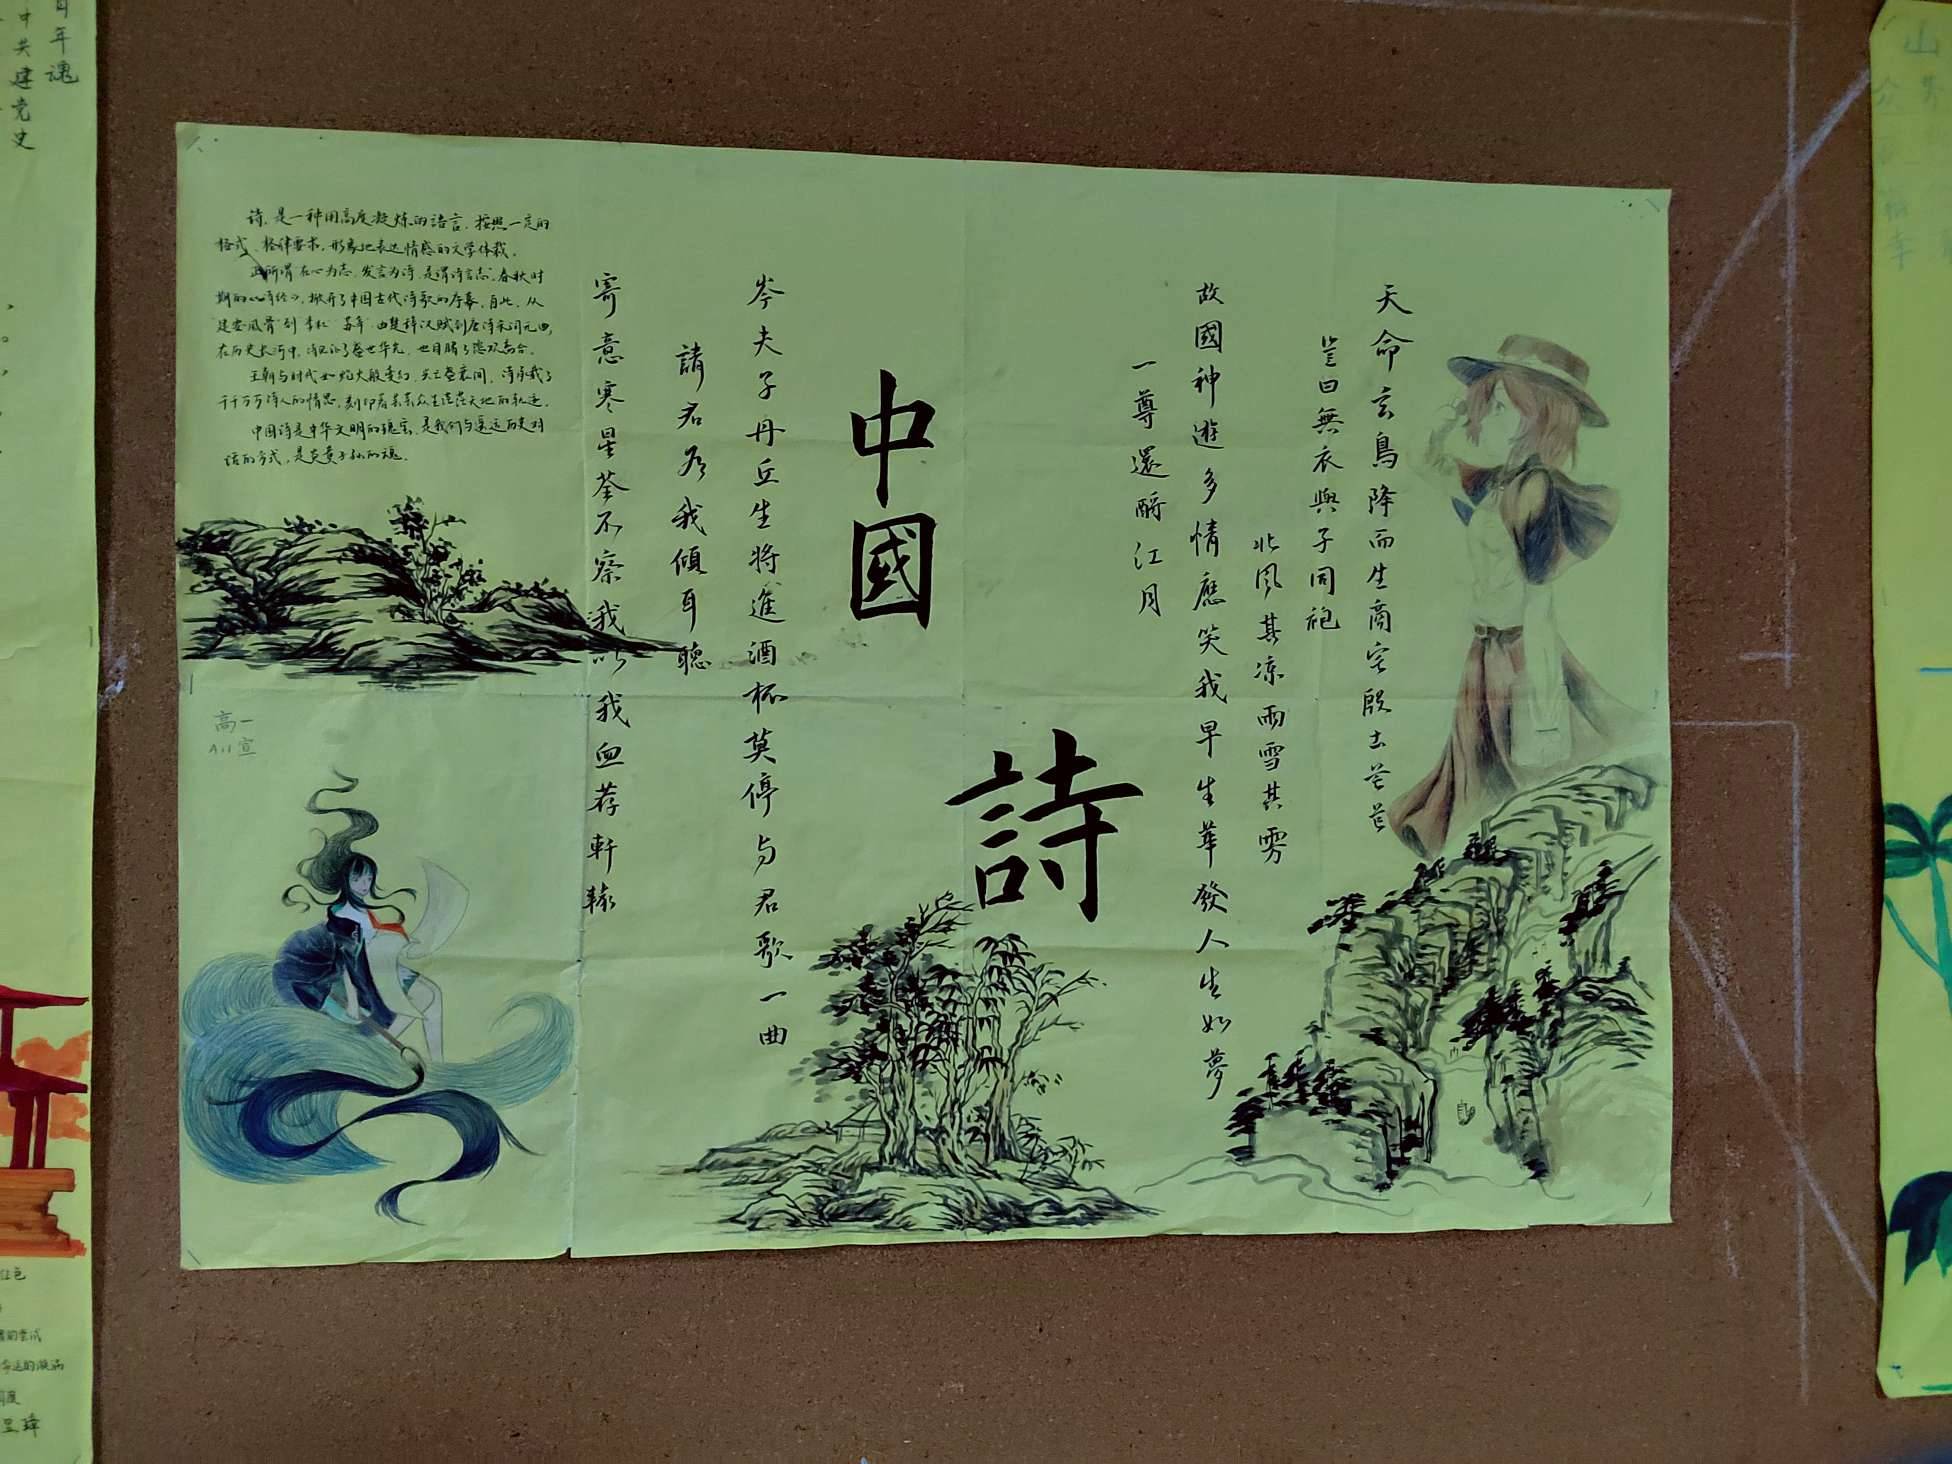 中國
詩
天命玄鳥降而生商宅殷土芒芒
豈曰無衣與子同袍
北风其凉雨雪其雱
故國神遊多情應笑我早生華發人生如夢
一尊還酹江月
岑夫子丹丘生将進酒杯莫停与君歌一曲
請君为我傾耳聽
寄意寒星荃不察我以我血荐軒轅
诗，是一种用高度凝炼的语言，按照一定的
格式、格律要求，形象地表达情感的文学体裁。
正所谓"在心为志，发言为诗"，是谓诗言志。春秋时
期的《诗经》，掀开了中国古代诗歌的序幕，自此，从
"建安风骨"到"李杜""苏辛"，由楚辞汉赋到唐诗宋词元曲，
在历史长河中，诗见证了盛世华光，也目睹了悲欢离合。
王朝与时代如蛇火般变幻，兴亡盛衰间，诗承载了
千千万万诗人的情思，刻印着芸芸众生 天地的轨迹。
中国诗是中华文明的瑰宝，是我们与遥远历史对
话的方式，是炎黄子孙的魂。
高一
A11 宣
百年魂
中共建党史